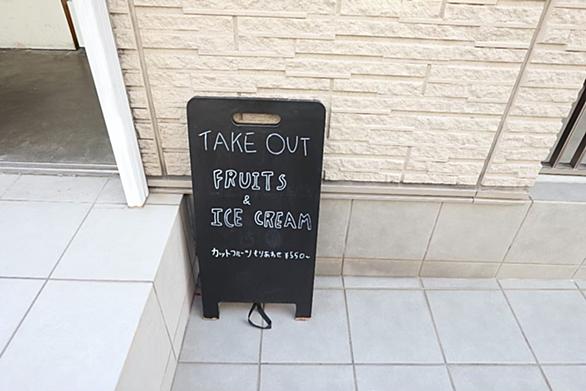 TAKE OUT
FRUITS
&
ICE CREAM
カットフルーツもりあわせ ¥550~